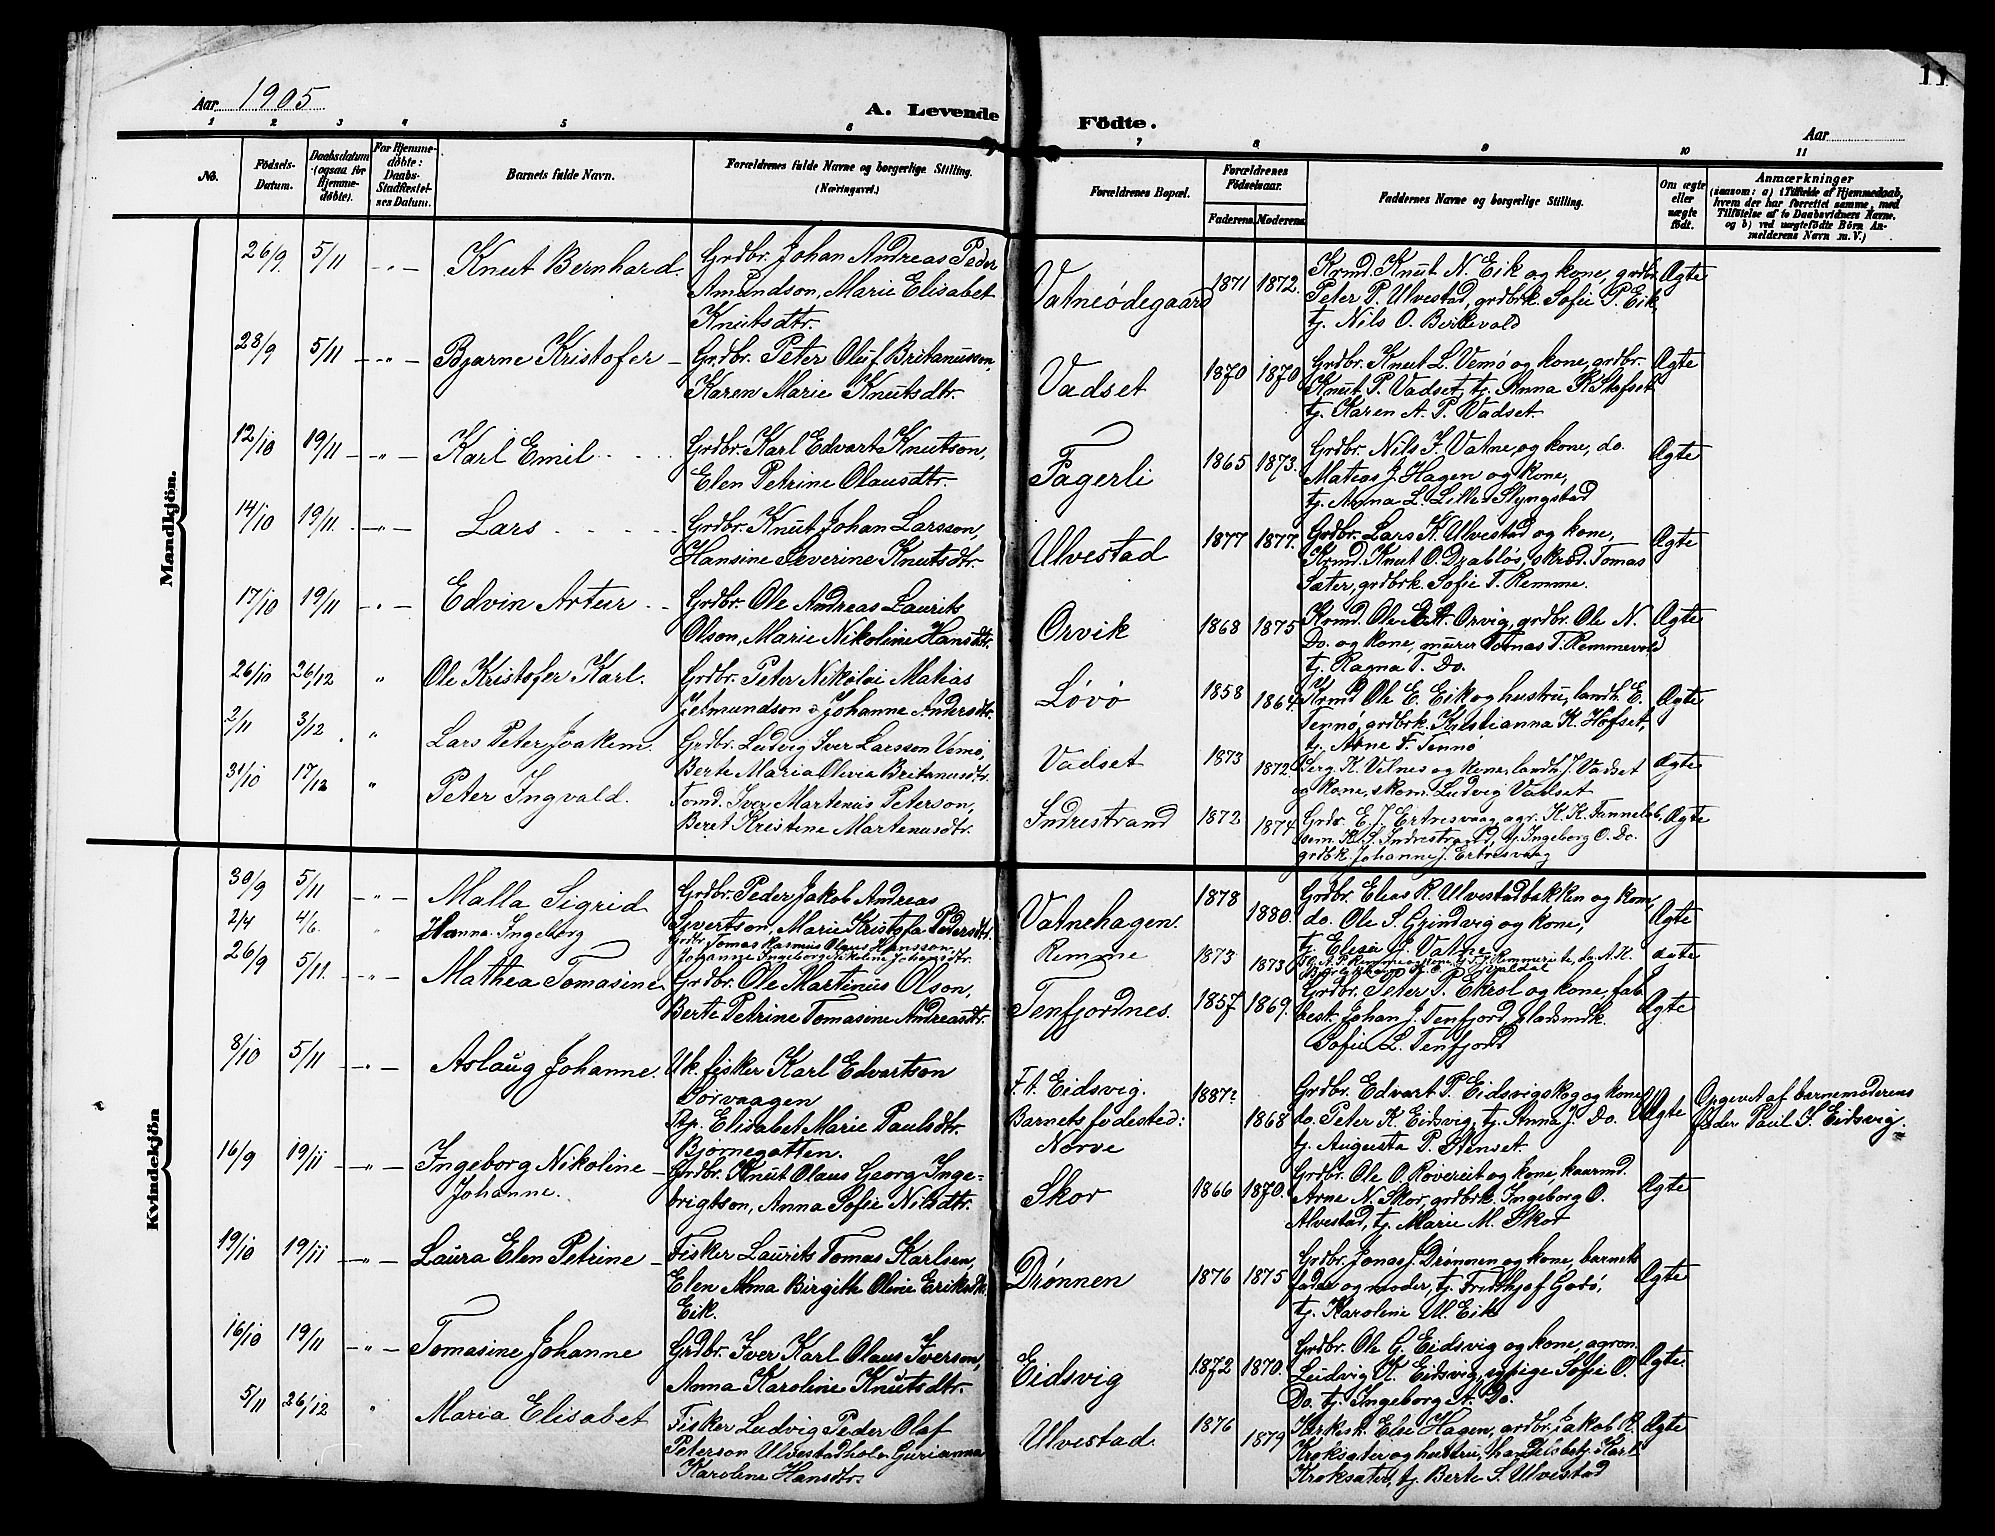 11
Aar 1905
A. Levende Födte.
Aar
1 2 3 4 5 6 7 8 9 10 11
No.
Födsels-Datum.
Daabsdatum (ogsaa for Hjemmedøbte).
For Hjemmedøbte: Daabs-Stadfæstelses Datum.
Barnets fulde Navn.
Forældrenes fulde Navne og borgerlige Stilling. (Næringsvei.)
Forældrenes Bopæl.
Forældrenes Födselsaar.
Faderens. Moderens.
Faddernes Navne og borgerlige Stilling.
Om ægte eller uægte födt.
Anmærkninger
(saasom: a) i Tilfælde af Hjemmedaab,
hvem der har forrettet samme, med
Tilföielse af to Daabsvidners Navne.
og b) ved uægtefödte Börn Anmelderens Navn m. V.)
Mandkjön.
26/9 5/11 - " - Knut Bernhard.
Grdbr. Johan Andreas Peder
Amundson, Marie Elisabet
Knutsdtr.
Vatneödegaard 1871 1872.
Krmd. Knut N. Eik og kone, grdbr.
Peter P. Ulvestad, grdbrk. Sofie P. Eik,
tj. Nils O. Birkevold
Ægte
28/9 5/11 - " - Bjarne Kristofer -
Grdbr. Peter Oluf Britanusson,
Karen Marie Knutsdtr.
Vadset 1870 1870
Grdbr. Knut L. Vemö og kone, grdbr.
Knut P. Vadset, tj. Anna K. Stafset
tj. Karen A. P. Vadset
Ægte
12/10 19/11 - " - Karl Emil
Grdbr. Karl Edvart Knutson,
Elen Petrine Olausdtr.
Fagerli 1865 1873.
Grdbr. Nils J. Vatne, og kone, do.
Matias J. Hagen og kone,
tj. Anna L. Lille-Slyngstad
Ægte
14/10 19/11. - " - Lars
Grdbr. Knut Johan Larsson,
Hansine Severine Knutsdtr.
Ulvestad 1877 1877.
Grdbr. Lars K. Ulvestad og kone,
Krmd. Knut O. Dyrblös, skræd. Tomas
Sæter, grdbrk. Sofie T. Remme.
Ægte
17/10 19/11 - " - Edvin Artur
Grdbr. Ole Andreas Laurits
Olson, Marie Nikoline Hansdtr.
Orvik 1868 1875
Krmd. Ole A. Orvig, grdbr. Ole N.
Do. og kone, murer Tomas T. Remmevold
tj. Ragna T. Do.
Ægte
26/10 26/12 " Ole Kristofer Karl.
Grdbr. Peter Nikolai Matias
Jetmundson & Johanne Andersdtr.
Lövö 1858 1864.
Krmd. Ole E. Eik og hustru, landh. E.
Tennö, grdbrk. Kristianna K. Hofset,
tj. Arne F. Tennö
Ægte
2/11 3/12 " Lars Peter Joakem.
Grdbr. Ludvig Iver Larsson Vemö,
Berte Maria Olivia Britanusdtr.
Vadset 1873 1872
Serg. K. Velnes og kone, landh. J. Vadset
og kone, skom. Ludvig Vadset
Ægte
31/10 17/12 " Peter Ingvald.
Tomd. Iver Martenus Peterson,
Beret Kristene Martenusdtr.
Indrestrand 1872 1874
Grdbr. E. J. Ertresvaag, agr. K. K. Tenneløb,
söm. K. S. Indrestrand, tj. Ingeborg O. Do.
grdbk. Johanne J. Ertresvaag
Ægte
Kvindekjön
30/9 5/11 - " - Malla Sigrid
Grdbr. Peder Jakob Andreas
Syvertson, Marie Kristofa Pedersdtr.
Vatnehagen. 1878 1880.
Grdbr. Elias R. Ulvestadbakken og kone,
do. Ole S. Grindvig og kone,
tj. Elesi L. Vatne
Ægte
2/4 4/6. " Hanna Ingeborg
Grdbr. Tomas Rasmus Olaus Hansson.
Johanne Ingeborg Nikoline Johansdtr.
Remme 1873 1873
ægte
26/9 5/11. - " - Mathea Tomasine
Grdbr. Ole Martinus Olson,
Berte Petrine Tomasine Andreasdtr.
Tenfjordnes. 1857 1869.
Grdbr. Peter P. Ekrol og kone, fab.
best. Johan J. Tenfjord, pladsmdk.
Sofie L. Tenfjord
Ægte
8/10 5/11 - " - Aslaug Johanne.
Uk. fisker Karl Edvartson
Sörvaagen
Pg. Elisabet Marie Paulsdtr.
Bjørnegotten.
F. t. Eidsvig.
Barnets födested:
Nörve
1887? 1868
Grdbr. Edvart P. Eidsvigskog og kone,
do. Peter K. Eidsvig, tj. Anna J. Do.
tj. Augusta P. Stenset.
Uægte
Opgevet af barnemoderens
fader Paul S. Eidsvig.
16/9 19/11 - " - Ingeborg Nikoline
Johanne.
Grdbr. Knut Olaus Georg Inge-
brigtson, Anna Sofie Nilsdtr.
Skor 1866 1870.
Grdbr. Ole O. Rövereit og kone, kaarmd.
Arne N. Skor, grdbrk. Ingeborg O.
Alvestad, tj. Marie M. Skor
Ægte
19/10 19/11 - " - Laura Elen Petrine -
Fisker Laurits Tomas Karlsen,
Elen Anna Birgith Oline Eriksdtr.
Eik.
Drönnen 1876 1875
Grdbr. Jonas J. Drönnen og kone, barnets
fader og moder, tj. Fritthjof Godö,
tj. Karoline M. Eik
Ægte
16/10 19/11 - " - Tomasine Johanne
Grdbr. Iver Karl Olaus Iverson,
Anna Karoline Knutsdtr.
Eidsvig 1872 1870.
Grdbr. Ole G. Eidsvig og kone, agron.
Ludvig K. Eidsvig, sypige Sofie O.
Do. tj. Ingeborg A. Do.
Ægte.
5/11 26/12 " Maria Elisabet
Fisker Ludvig Peder Olaf
Peterson Ulvestadhol & Gurianna
Karoline Hansdtr.
Ulvestad. 1876 1879
Kirkesk. Else Hagen, grdbr. Jakob R.
Kroksæter og hustru, handelsbetj. Karl
Kroksæter, tj. Berte S. Ulvestad
Ægte